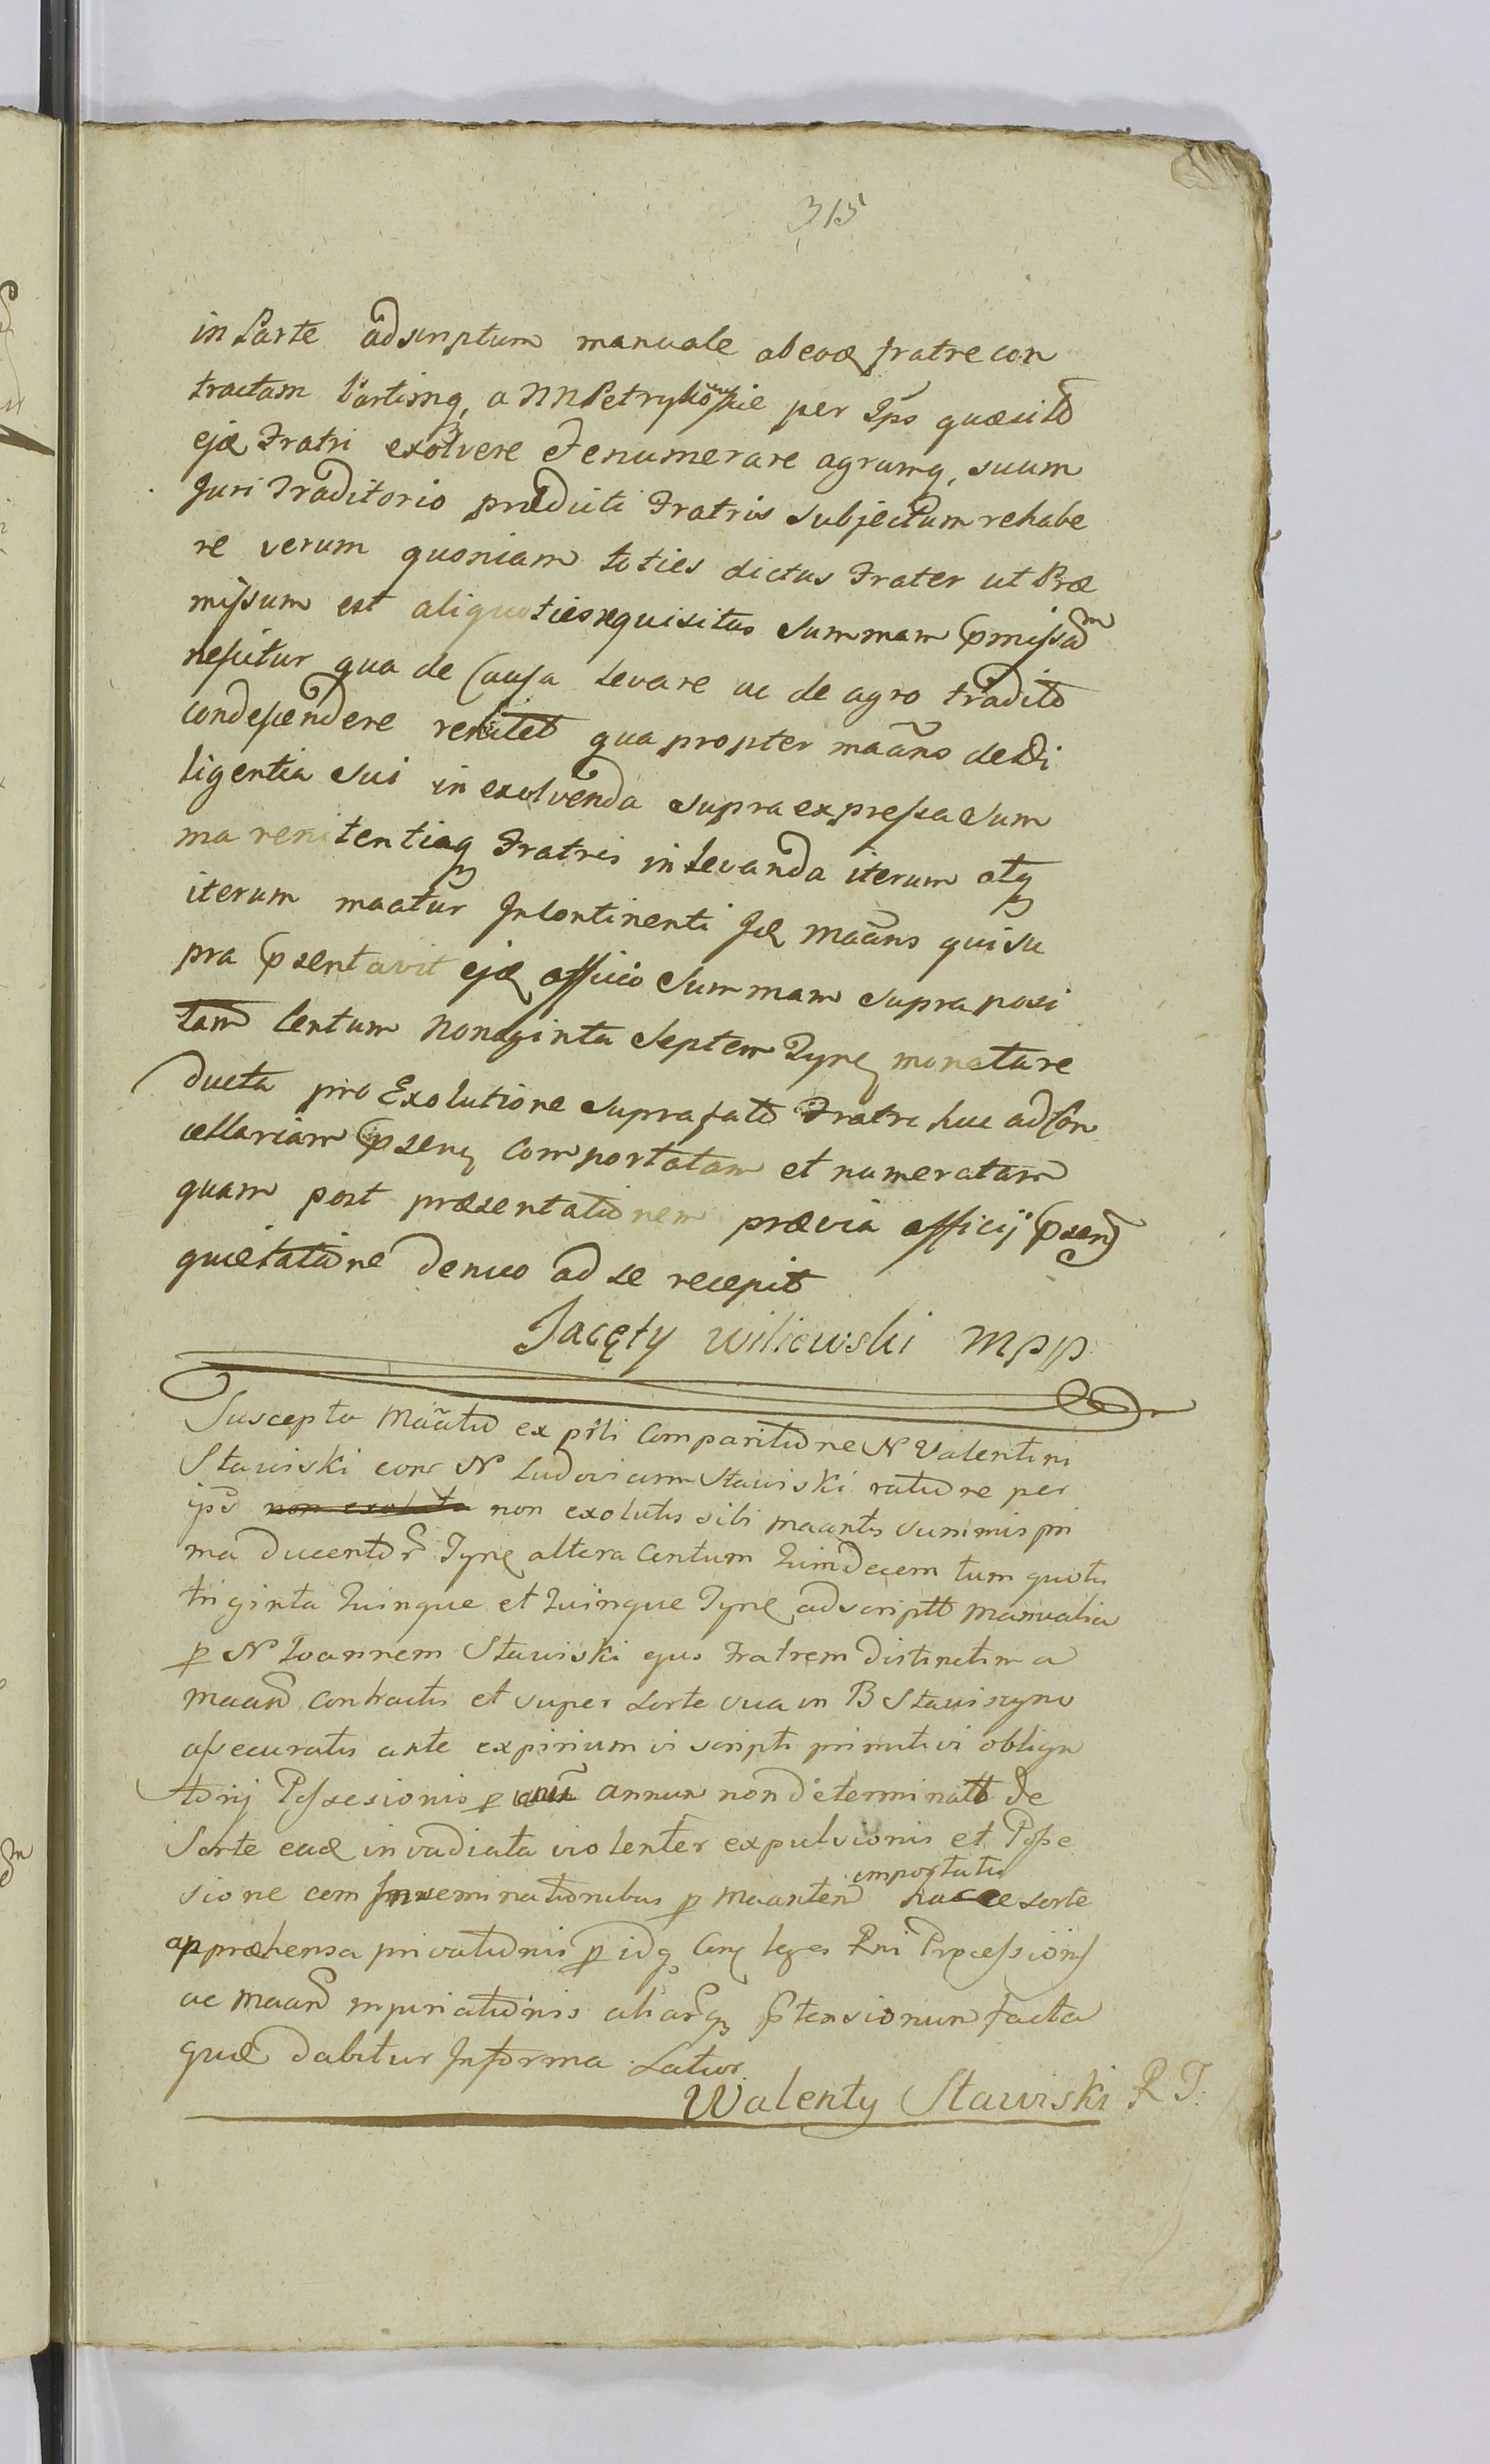 315
in Parte adscriptum manuale ab eoq fratre con
tractam Partimq, a NN Petrykowskie per Ips quæsito
ejq Fratri exolvere et enumerare agrumq, suum
Juri Traditorio prædicti Fratris subjectum rehabe
re verum quoniam toties dictus Frater ut Præ
missum est aliquoties requisitus summam pmissam
nescitur qua de Causa levare ac de agro tradito
condescendere renitet qua propter maans de di
ligentia sui in exolvenda supra expressa sum
ma renitentiaq Fratris in levanda iterum atq
iterum maatur Incontinenti Jq maans qui su
pra psentavit ejq officio summam supra posi
tam Centum Nonaginta Septem Tynf monetare
ducta pro Exolutione suprafato Fratri huc ad Can
cellariam psenq comportatam et numeratam
quam post præsentationem prævia officij psen
quietatione denuo ad se recepit
Jacęty Wiliewski mpp
Suscepta Maato ex psti Comparitione N Valentini
Stawiski con N Ludovicum Stawiski ratione per
ips non exoluta non exolutis sibi maantis summis pri
ma ducentor Tynf altera Centum Quindecem tum quotis
triginta Quinque et Quinque Tynf adscript manualia
p N Joannem Stawiski ejus Fratrem distinctim a
maan contractis et super sorte sua in B Stawiszyno
assecuratis ante expirium vi scripti primitivi obliga
torij Possesionis p annum non determinat de
Sorte eadq invadiata violenter expulsionis et Posse
sione cem Inseminationibus p maanten importatis hacce sorte
appræhensa privationis p idq Conq leges Rni Processions
ac maan injuriationis aliarq ptensionum facta
quæ dabitur In forma Latior
Walenty Stawiski R T.